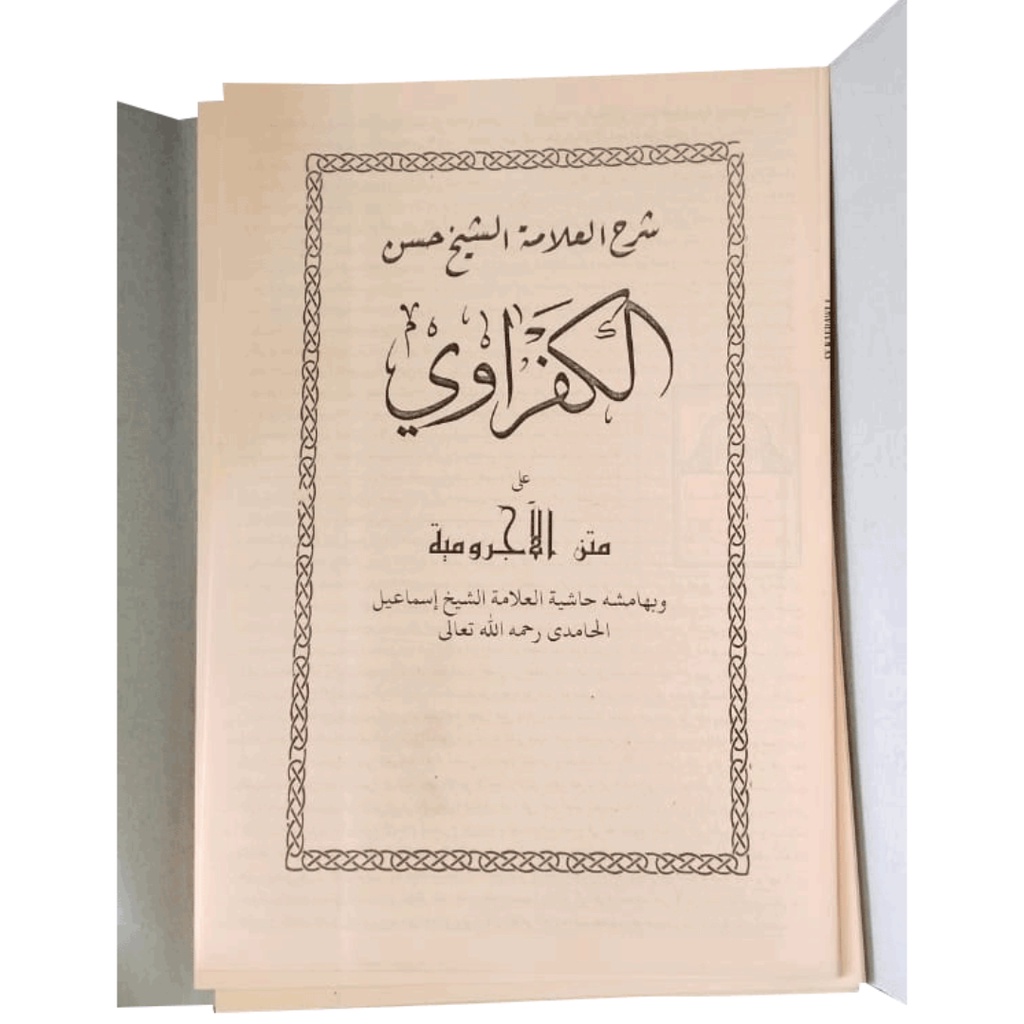 شرح العلامة الشيخ حسن
الكفراوي
على
متن الآجرومية
وبهامشه حاشية العلامة الشيخ إسماعيل
الحامدى رحمه الله تعالى